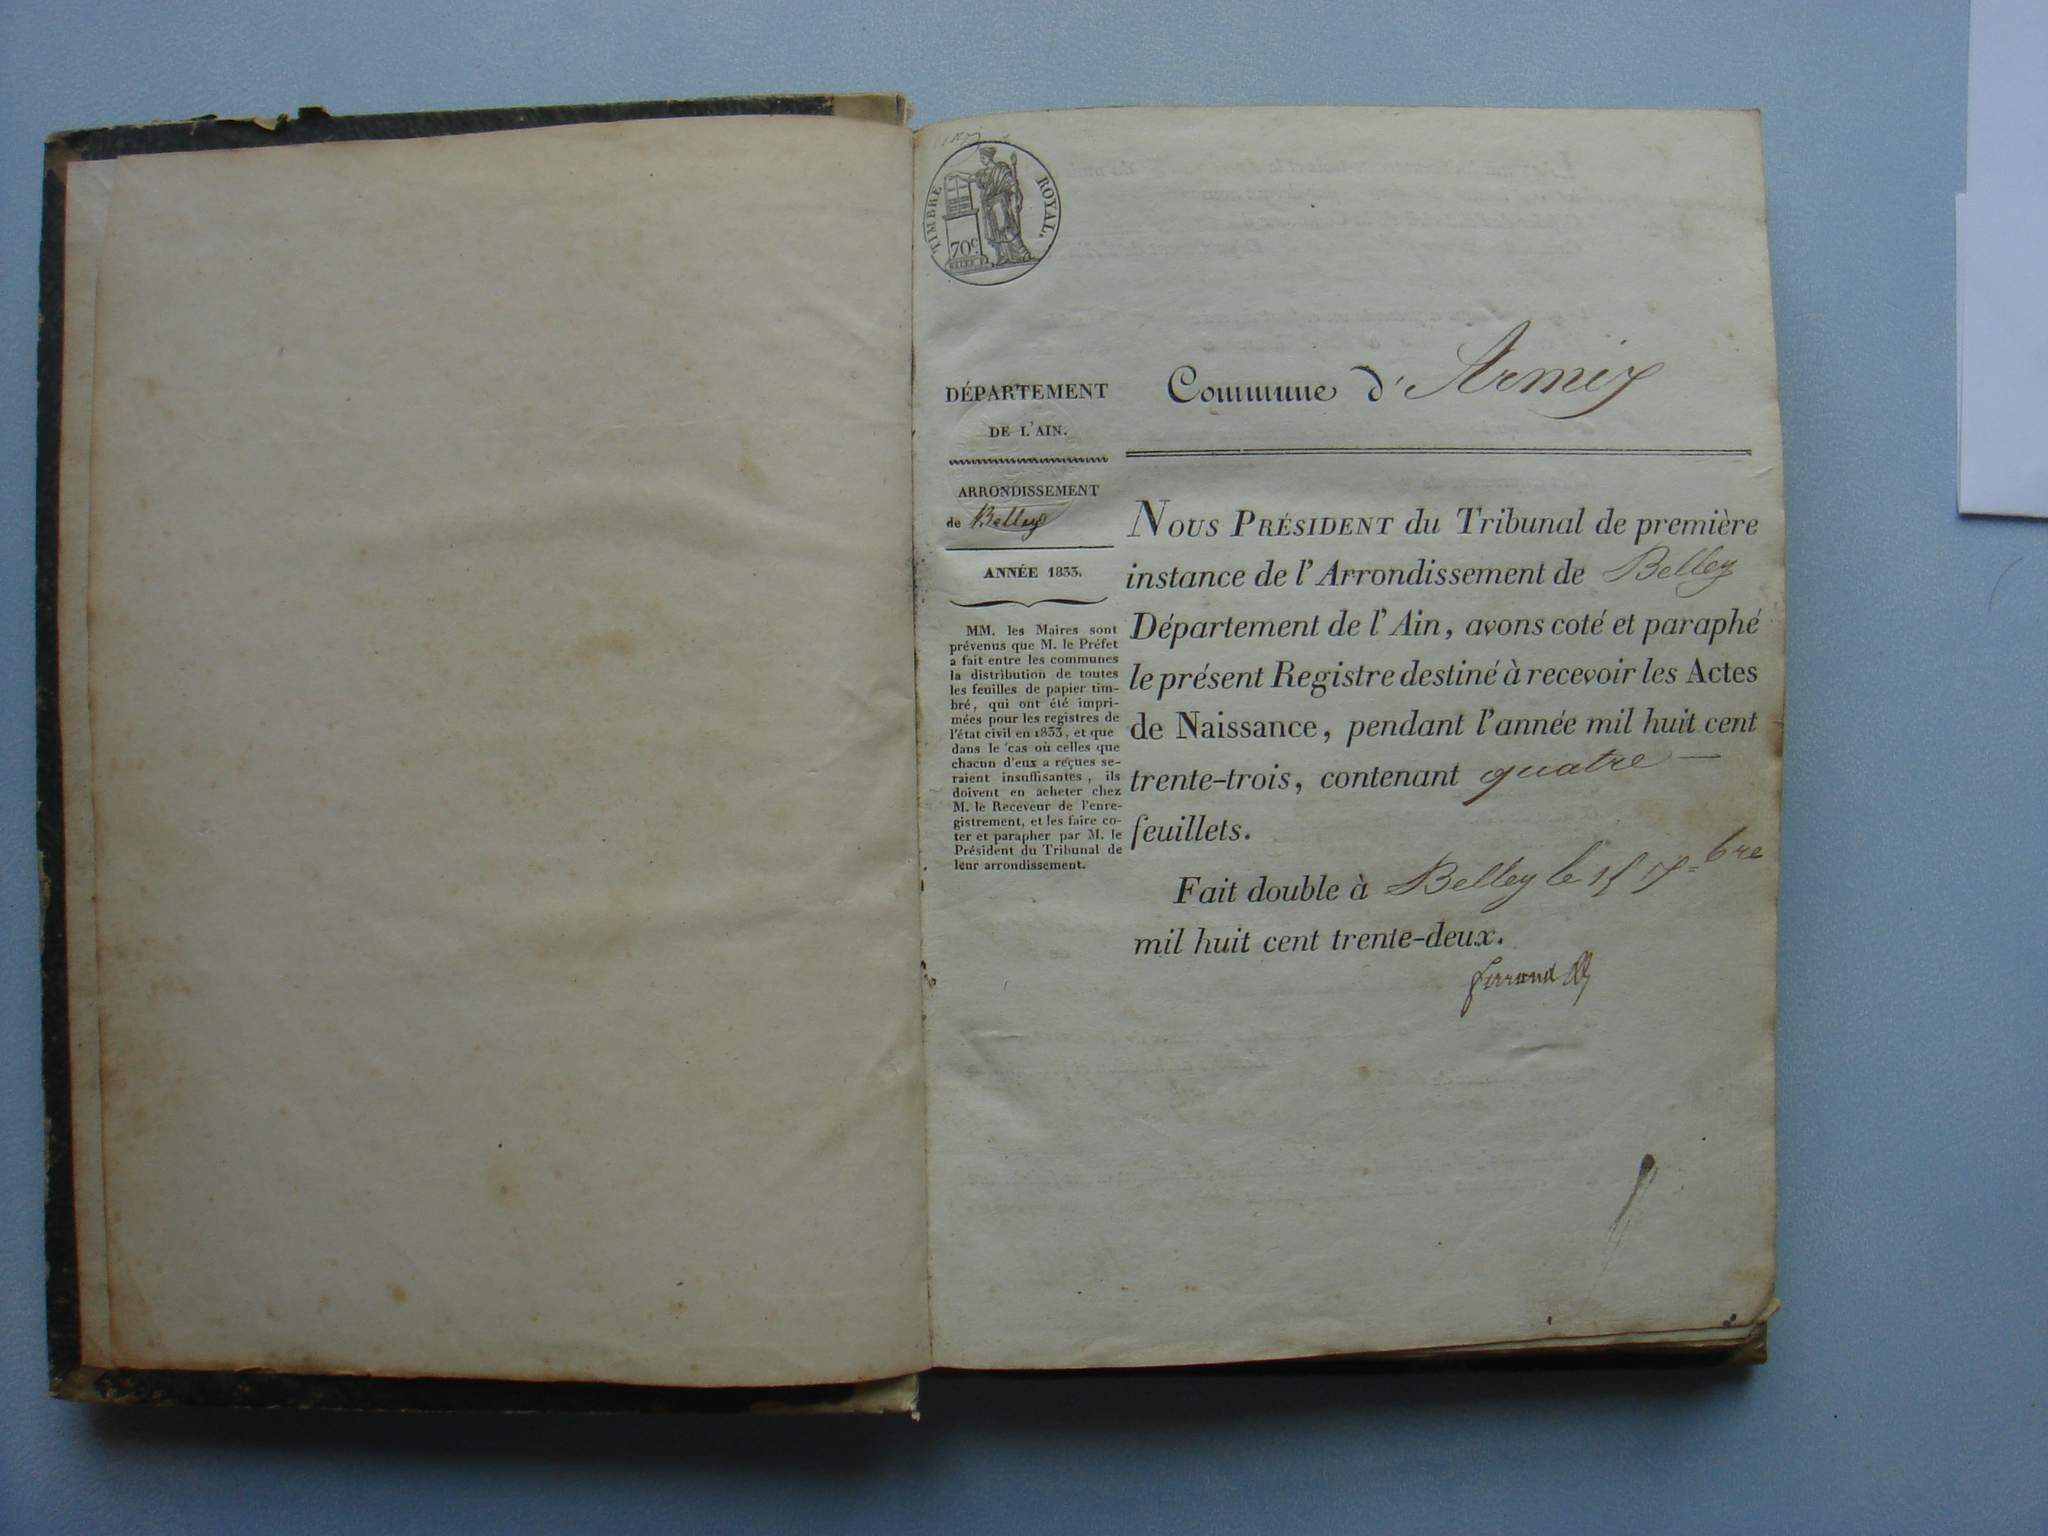 TIMBRE ROYAL.
70c
DÉPARTEMENT
DE L'AIN.
ARRONDISSEMENT
de Belley
ANNÉE 1833.
MM. les Maires sont
prévenus que M. le Préfet
a fait entre les communes
la distribution de toutes
les feuilles de papier tim-
bré, qui ont été impri-
mées pour les registres de
l'état civil en 1833, et que
dans le cas où celles que
chacun d'eux a reçues se-
raient insuffisantes, ils
doivent en acheter chez
M. le Receveur de l'enre-
gistrement, et les faire co-
ter et parapher par M. le
Président du Tribunal de
leur arrondissement.
Commune d'Armix
NOUS PRÉSIDENT du Tribunal de première
instance de l'Arrondissement de Belley
Département de l'Ain, avons coté et paraphé
le présent Registre destiné à recevoir les Actes
de Naissance, pendant l'année mil huit cent
trente-trois, contenant quatre
feuillets.
Fait double à Belley le
mil huit cent trente-deux.